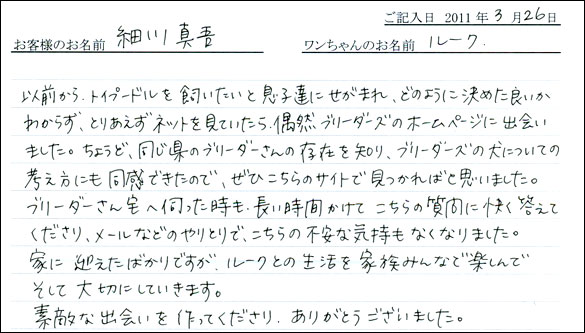 ご記入日 2011年3月26日
お客様のお名前 細川 真吾 ワンちゃんのお名前 ルーク.
以前から、トイプードルを飼いたいと息子達にせがまれ、どのように決めた良いか
わからず、とりあえずネットを見ていたら、偶然ブリーダーズのホームページに出会い
ました。ちょうど、同じ県のブリーダーさんの存在を知り、ブリーダーズの犬についての
考え方にも同感できたので、ぜひこちらのサイトで見つかればと思いました。
ブリーダーさん宅へ伺った時も、長い時間かけてこちらの質問に快く答えて
くださり、メールなどのやりとりで、こちらの不安な気持もなくなりました。
家に迎えたばかりですが、ルークとの生活を家族みんなで楽しんで
そして大切にしていきます。
素敵な出会いを作ってくださり、ありがとうございました。